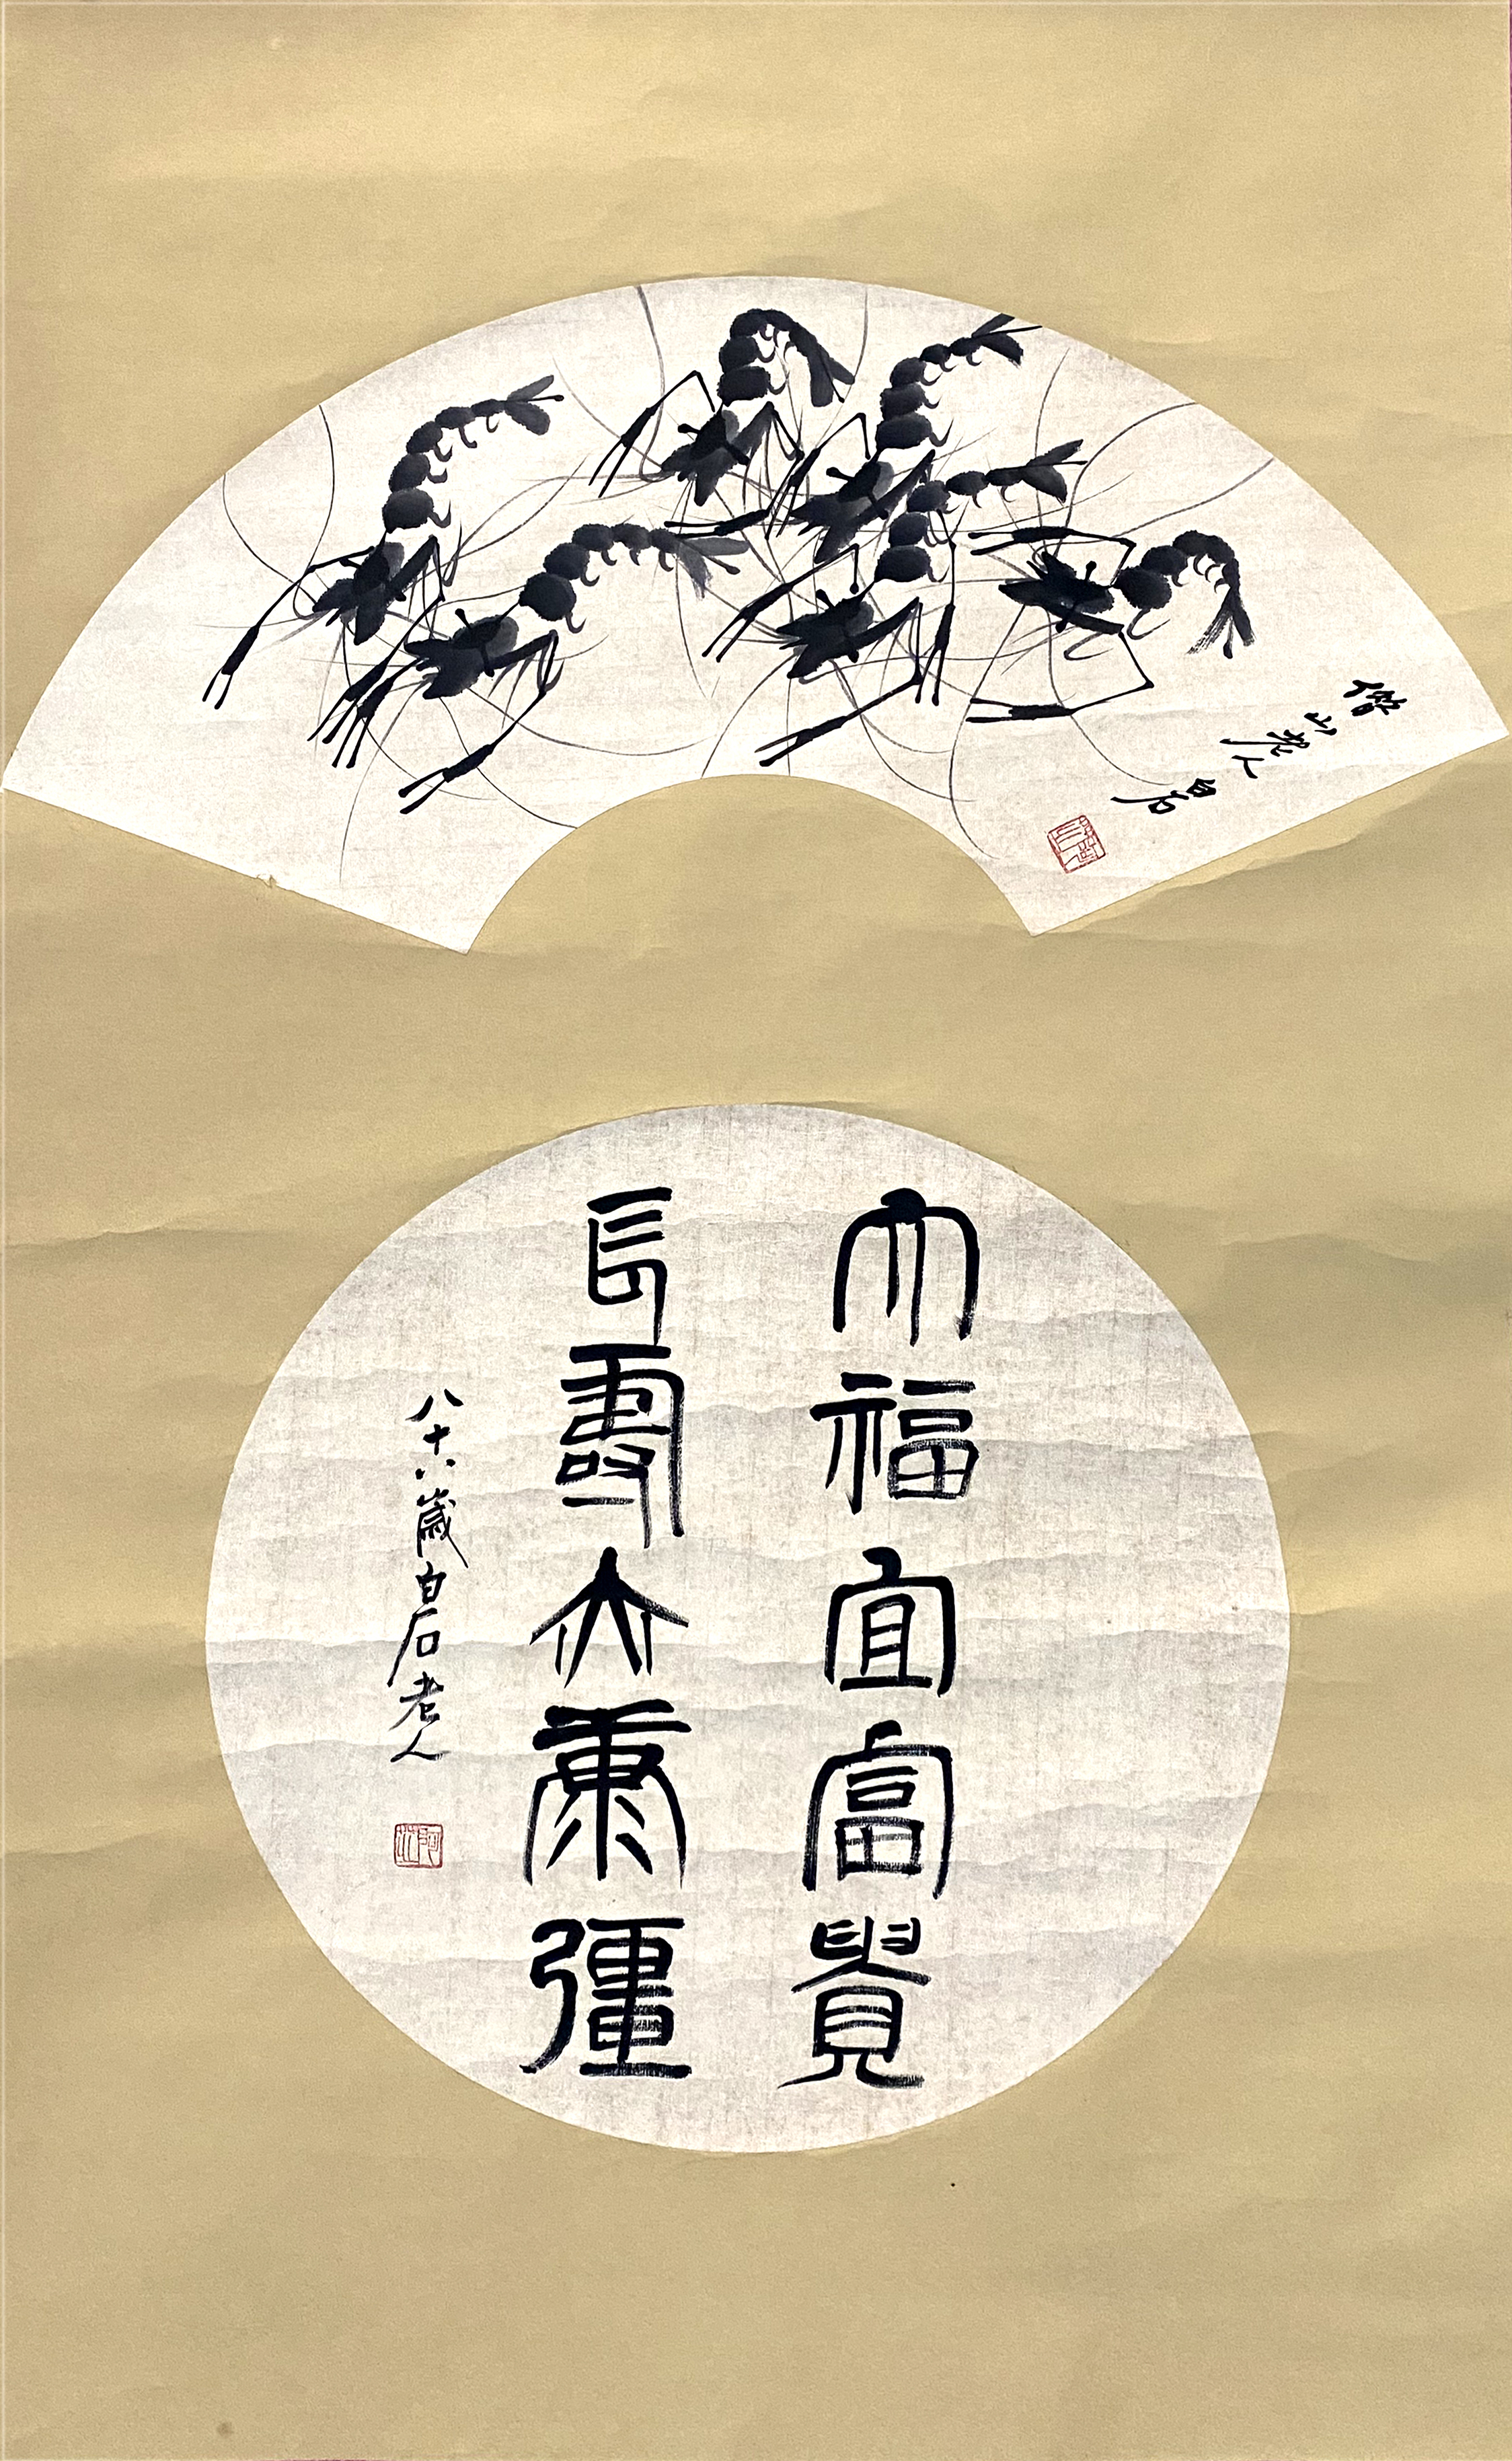 借山老人白石
大福宜富貴
長壽亦康彊
八十八歲白石老人
阿芝